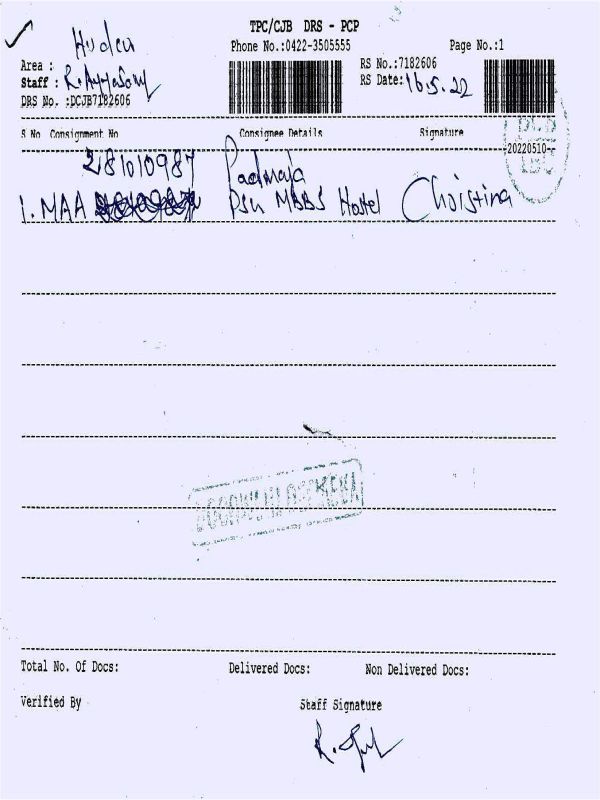 TPC/CJB DRS - PCP
Phone No.:0422-3505555
Page No.:1
Area :
Staff : R. Ayyasamy
DRS No. :DCJB7182606
RS No.:7182606
RS Date: 16.5.22
S No Consignment No Consignee Details Signature
-20220510--
281010987 Padmaja
1. MAA PSG MBBS Hostel Christina
Total No. Of Docs: Delivered Docs: Non Delivered Docs:
Verified By Staff Signature